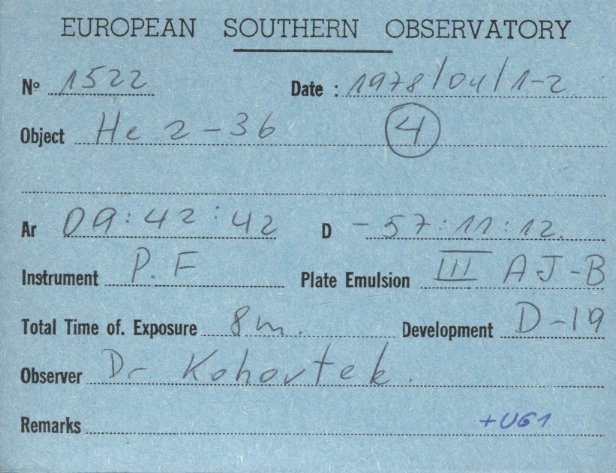 EUROPEAN SOUTHERN OBSERVATORY
Nº 1522 Date : 1978/04/1-2
Object He 2-36 4
Ar 09:42:42 D -57:11:12
Instrument P.F Plate Emulsion III AJ-B
Total Time of. Exposure 8m. Development D-19
Observer Dr Kohoutek.
Remarks +UG1